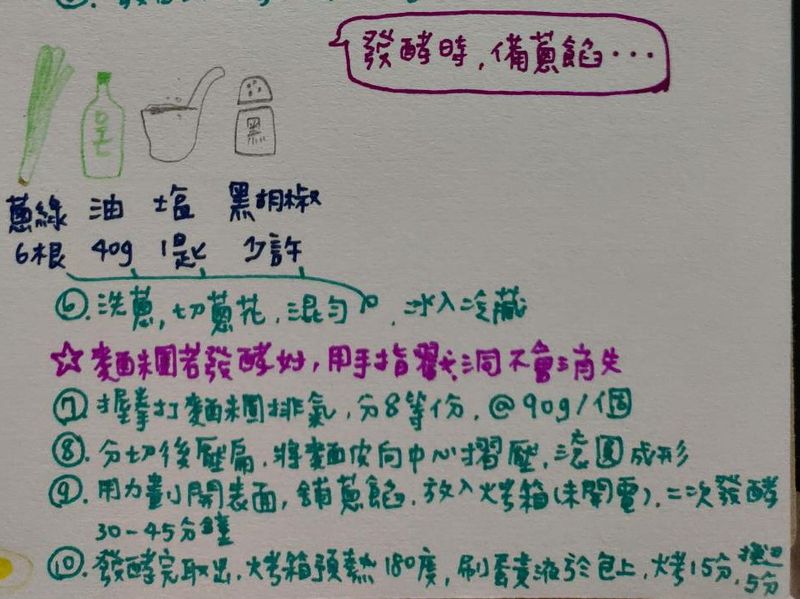 發酵時,備蔥餡...
黑
蔥綠 油 塩 黑胡椒
6根 40g 1匙 少許
⑥.洗蔥,切蔥花,混勻,冰入冷藏
☆麵糰若發酵好,用手指戳洞不會消失
⑦握拳打麵糰排氣,分8等份,@90g/1個
⑧.分切後壓扁,將麵皮向中心摺壓,滾圓成形
⑨.用力劃開表面,鋪蔥餡,放入烤箱(未開電),二次發酵
30-45分鐘
⑩.發酵完取出,烤箱預熱180度,刷蛋黃液於包上,烤15分,換邊
5分